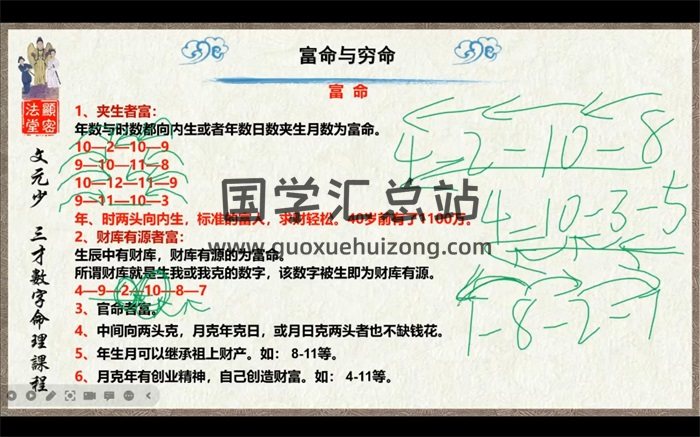 富命与穷命
富 命
顯密
法堂
文元少 三才数字命理課程
1、夹生者富：
年数与时数都向内生或者年数日数夹生月数为富命。
10—2—10—9
9—10—11—8
10—12—11—9
9—11—10—3
年、时两头向内生，标准的富人，求财轻松。40岁前有了1100万。
2、财库有源者富：
生辰中有财库，财库有源的为富命。
所谓财库就是生我或我克的数字，该数字被生即为财库有源。
4—9—2—10—8—7
3、官命者富。
4、中间向两头克，月克年克日，或月日克两头者也不缺钱花。
5、年生月可以继承祖上财产。如： 8-11等。
6、月克年有创业精神，自己创造财富。如： 4-11等。
4=2=10=8
4=10-3-5
1-8-2-1
国学汇总站
www.guoxuehuizong.com